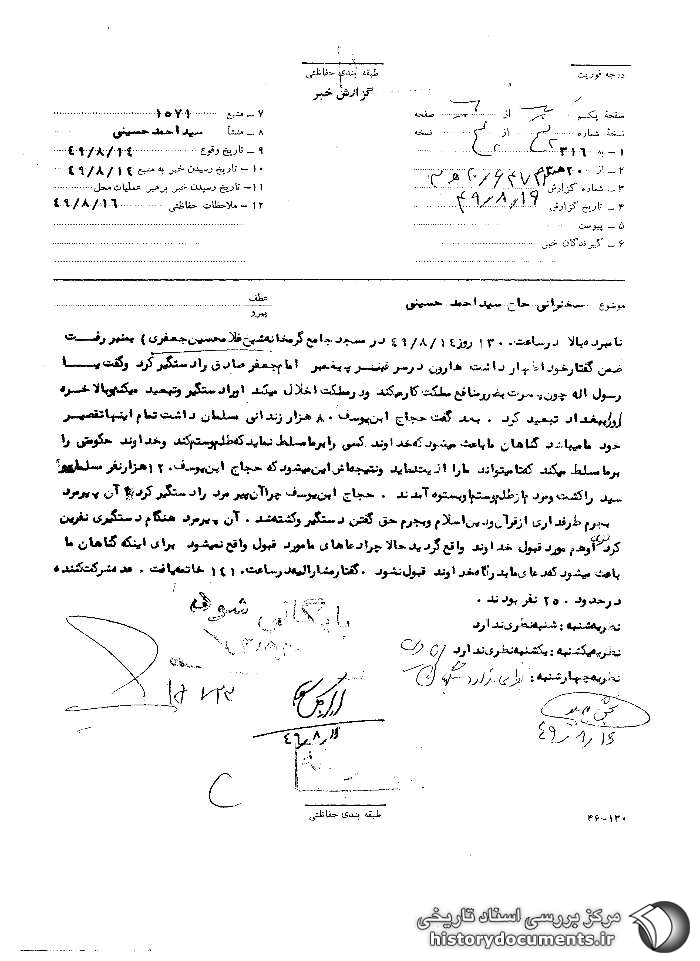 طبقه بندی حفاظتی
گزارش خبر
درجه فوریت
صفحه یکم از صفحه
نسخه شماره از نسخه
۱ - به ۳۱۶
۲ - از ۲۰ هـ
۳ - شماره گزارش
۴ - تاریخ گزارش ۴۹/۸/۱۹
۵ - پیوست
۶ - گیرندگان خبر
۷ - منبع ۱۵۷۱
۸ - منشأ سید احمد حسینی
۹ - تاریخ وقوع ۴۹/۸/۱۴
۱۰ - تاریخ رسیدن خبر به منبع
۱۱ - تاریخ رسیدن خبر برهبر عملیات محل
۱۲ - ملاحظات حفاظتی ۴۹/۸/۱۶
موضوع سخنرانی حاج سید احمد حسینی
عطف
پیرو
نامبرده بالا در ساعت ۱۳۰ روز ۴۹/۸/۱۴ در مسجد جامع گرمخانه (شیخ غلامحسین جعفری) بمنبر رفت
ضمن گفتار خود اظهار داشت هارون در سر قبر پیغمبر امام جعفر صادق را دستگیر کرد و گفت یا
رسول اله چون پسرت بضرر منافع ملکت کار میکند و در مملکت اخلال میکند او را دستگیر و تبعید میکنم و بالاخره
او را ببغداد تبعید کرد . بعد گفت حجاج ابن یوسف ۸۰ هزار زندانی مسلمان داشت تمام اینها تقصیر
خود ما میباشد گناهان ما باعث میشود که خداوند کسی را بر ما مسلط نماید که ظلم و ستم کند و خداوند حکومتی را
بر ما مسلط میکند که تا میتواند ما را اذیت نماید و نتیجه اش این میشود که حجاج ابن یوسف ۱۲ هزار نفر مسلمان و
سید را کشت و مردم از ظلم و ستم او بستوه آمدند . حجاج ابن یوسف چرا آن پیر مرد را دستگیر کرد آن پیرمرد
بجرم طرفداری از قرآن و دین اسلام و بجرم حق گفتن دستگیر و کشته شد . آن پیرمرد هنگام دستگیری نفرین
کرد او هم مورد قبول خداوند واقع گردید حالا چرا دعاهای ما مورد قبول واقع نمیشود برای اینکه گناهان ما
باعث میشود که دعای ما بدرگاه خداوند قبول نشود . گفتار مشارالیه در ساعت ۱۴۱ خاتمه یافت . عده شرکت کننده
در حدود ۲۵۰ نفر بودند .
نظریه شنبه : شنبه نظری ندارد
نظریه یکشنبه : یکشنبه نظری ندارد
نظریه چهارشنبه :
بایگانی شود
۴۹/۸/۱۶
طبقه بندی حفاظتی
۴۶-۱۳۰
مرکز بررسی اسناد تاریخی
historydocuments.ir